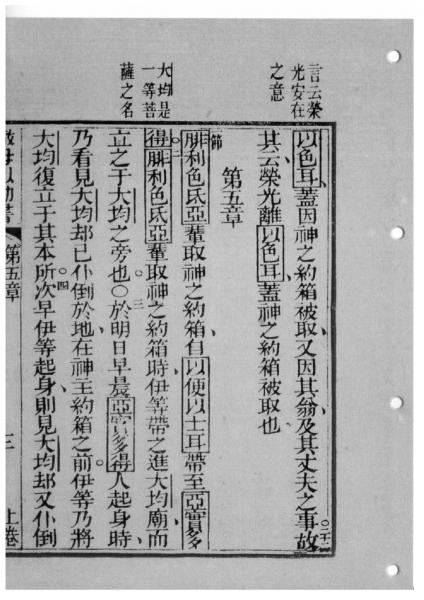 言云榮
光安在
之意
大均是
一等菩
薩之名
以色耳蓋因神之約箱被取又因其翁及其丈夫之事故
二十二
其云榮光離以色耳蓋神之約箱被取也
第五章
節
腓利色氏亞輩取神之約箱自以便以士耳帶至亞實多
得二腓利色氏亞輩取神之約箱時伊等帶之進大均廟而
立之于大均之旁也〇三於明日早晨亞實多得人起身時
乃看見大均却已仆倒於地在神主約箱之前伊等乃將
大均復立于其本所四次早伊等起身則見大均却又仆倒
第五章
三
上卷